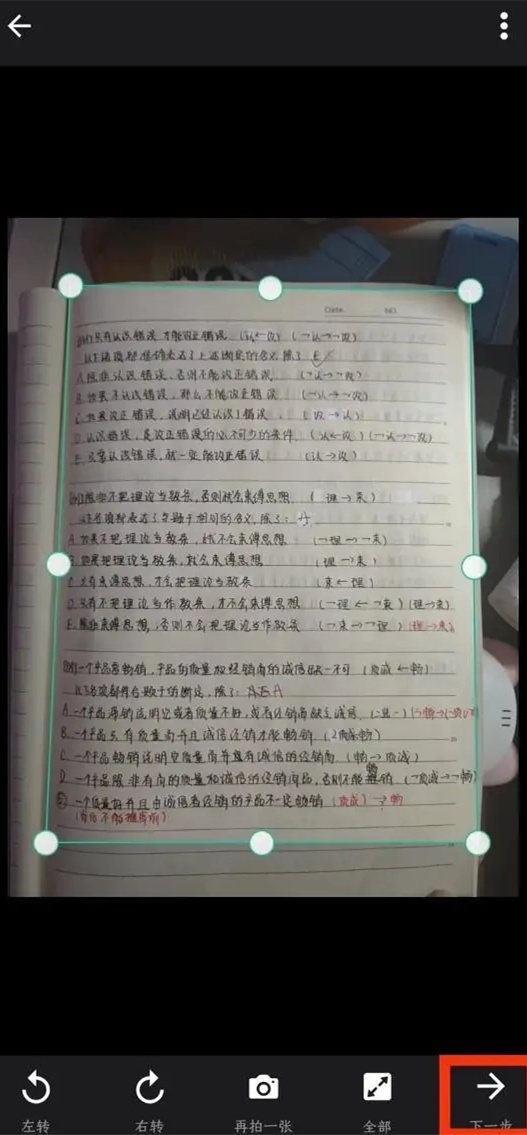 Date. NO.
只有认识错误 才能改正错误 (认←改) (¬认→¬改)
以下诸项都准确表达了上述断定的含义,除了 E
A. 除非认识错误,否则不能改正错误 (¬认→¬改)
B. 如果不认识错误,那么不能改正错误 (¬认→¬改)
C. 如果改正错误,说明已经认识了错误 (改→认)
D. 认识错误,是改正错误的必不可少的条件 (认←改)(¬认→¬改)
E. 只要认识错误,就一定能改正错误 (认→改)
除非不把理论当教条,否则就会束缚思想. (理→束)
以下各项都表达了与题干相同的含义,除了:
A. 如果不把理论当教条,就不会束缚思想 (¬理→¬束)
B. 如果把理论当教条,就会束缚思想 (理→束)
C. 只有束缚思想,才会把理论当教条 (束←理)
D. 只有不把理论当作教条,才不会束缚思想 (¬理←¬束)(理→束)
E. 除非束缚思想,否则不会把理论当作教条 (¬束→¬理)(理→束)
一个产品要畅销,产品的质量和经销商的诚信缺一不可 (质诚←畅)
以下各项都符合题干的断定,除了:
A. 一个产品滞销说明它或者质量不好,或者经销商缺乏诚信
B. 一个产品只有质量高并且诚信经销才能畅销
C. 一个产品畅销说明它质量高并且有诚信的经销商 (畅→质诚)
D. 一个产品除非有高的质量和诚信的经销商,否则不能畅销 (¬质诚→¬畅)
E 一个质量好并且由诚信者经销的产品不一定畅销 (质诚)→畅
左转
右转
再拍一张
全部
下一步